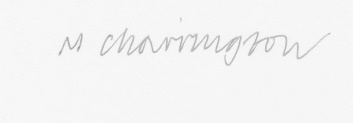 M Charrington